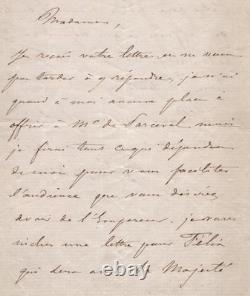 Madame,
Je reçois votre lettre, et ne veux
pas tarder à y répondre, je n'ai
quand à moi aucune place à
offrir à Mr de Parceval mais
je ferai tout ce qui dépendra
de moi pour vous faciliter
l'audience que vous désirez
avoir de l'Empereur. je vous
une lettre pour Félix
qui sera Majesté